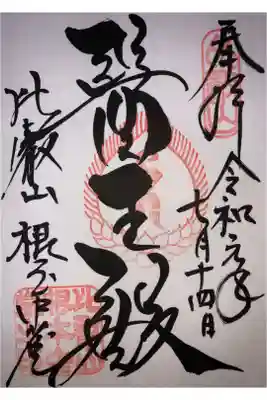 奉拝 令和元年
七月十四日
醫王殿
比叡山 根本中堂